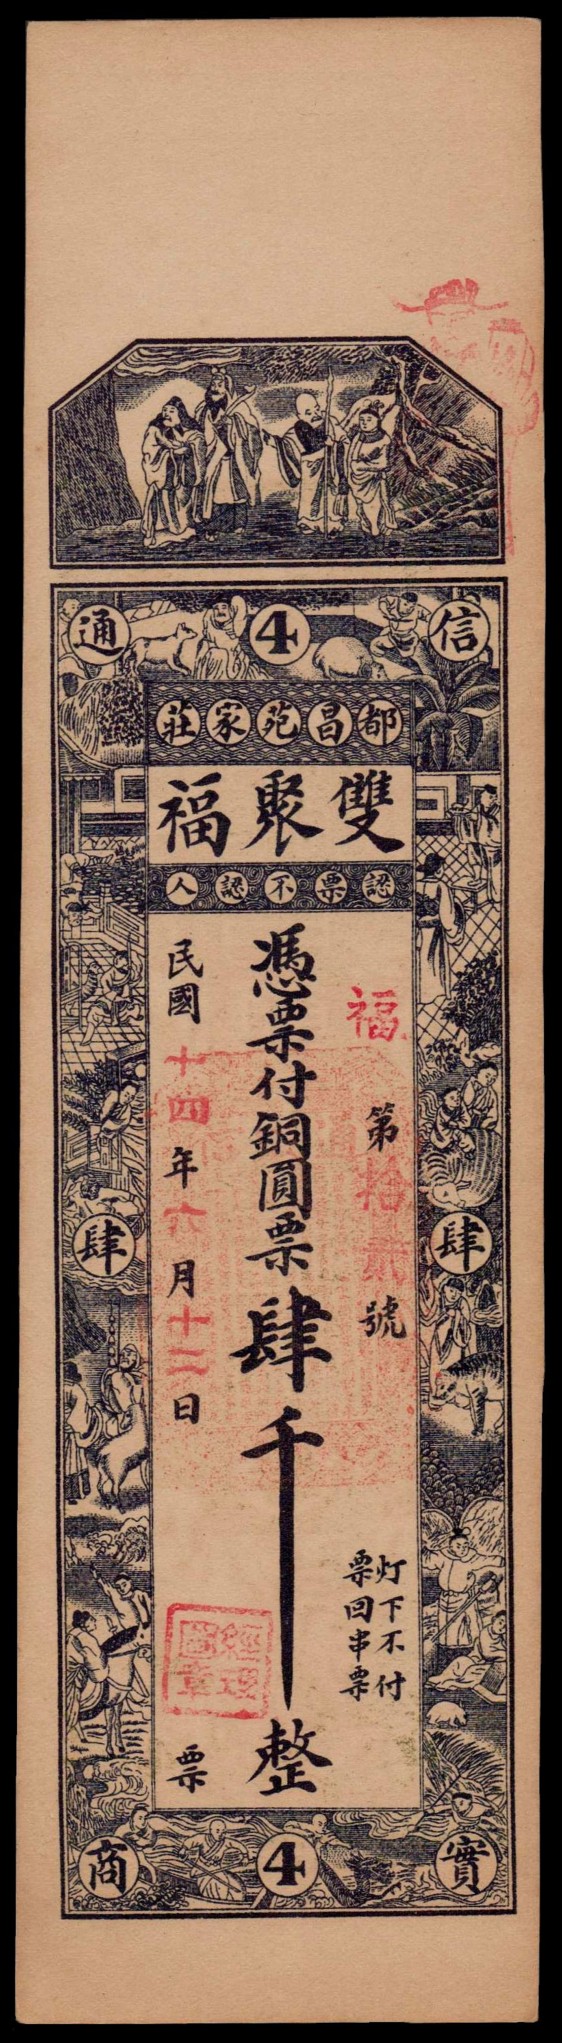 信4通
都昌苑家莊
雙聚福
認票不認人
福第拾貳號
灯下不付
票回串票
憑票付銅圓票肆千整
民國十四年六月十二日票
經理圖章
肆
肆
實4商